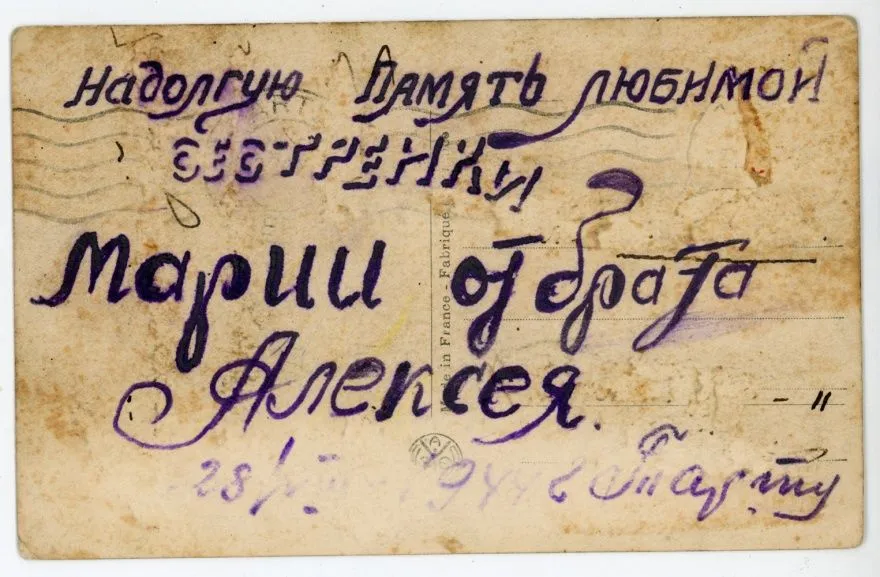 Надолгую Память любимой
сестренки
Марии от брата
Алексея.
28/VIII 1944 г Тарту
Made in France - Fabriqué